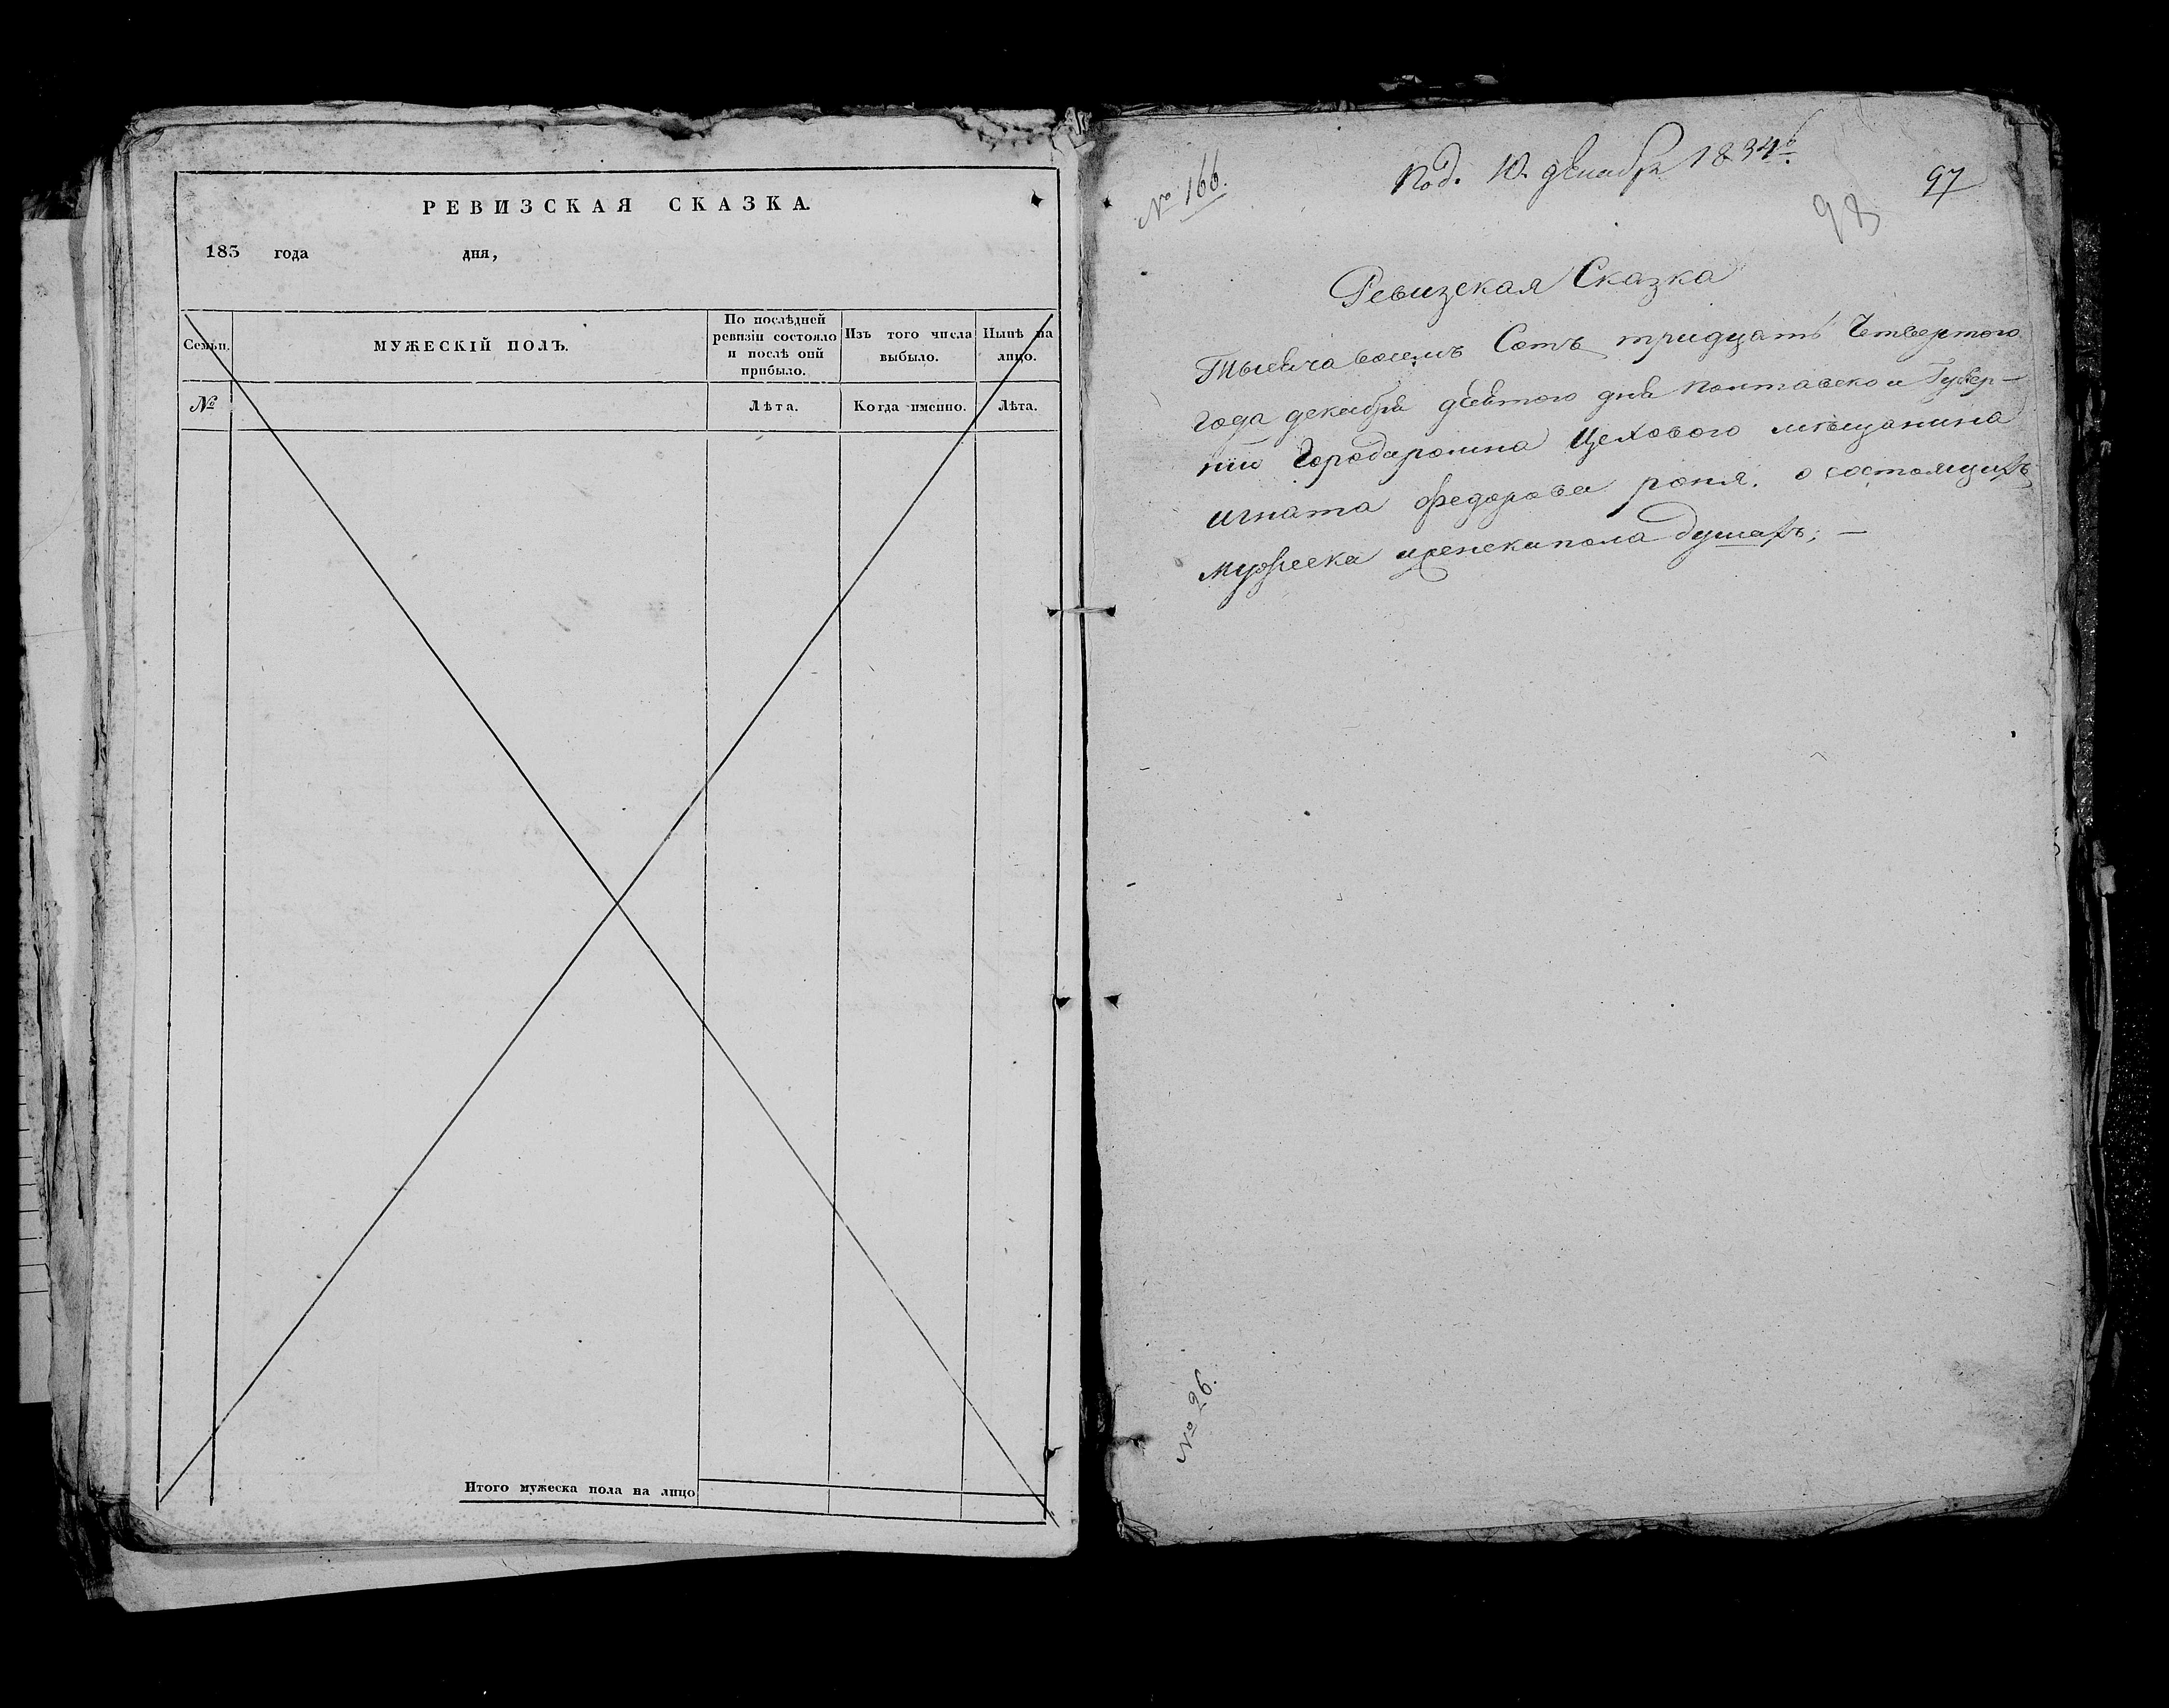 РЕВИЗСКАЯ СКАЗКА.
183 года дня,
Семьи.
МУЖЕСКІЙ ПОЛЪ.
По послѣдней
ревизіи состояло
и послѣ оній
прибыло.
Изъ того числа
выбыло.
Нынѣ на
лицо.
№
Лѣта.
Когда именно.
Лѣта.
Итого мужеска пола на лицо
№ 166.
Под. 10. декабря 1834го
97
98
Ревизская Сказка
Тысяча восемъ Сотъ тридцать Четвертого
года декабря девятого дня Полтавской Губер-
ніи Города ромна Цехового мѣщанина
игната федорова роня. о состоящихъ
мужеска иженска пола душахъ; —
№ 26.